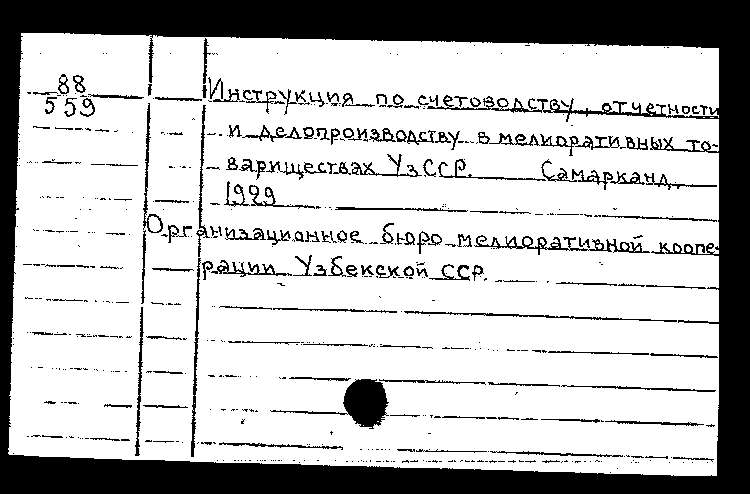 88
559
Инструкция по счетоводству, отчетности
и делопроизводству в мелиоративных то-
вариществах УзССР. Самарканд,
1929
Организационное бюро мелиоративной коопе-
рации Узбекской ССР.